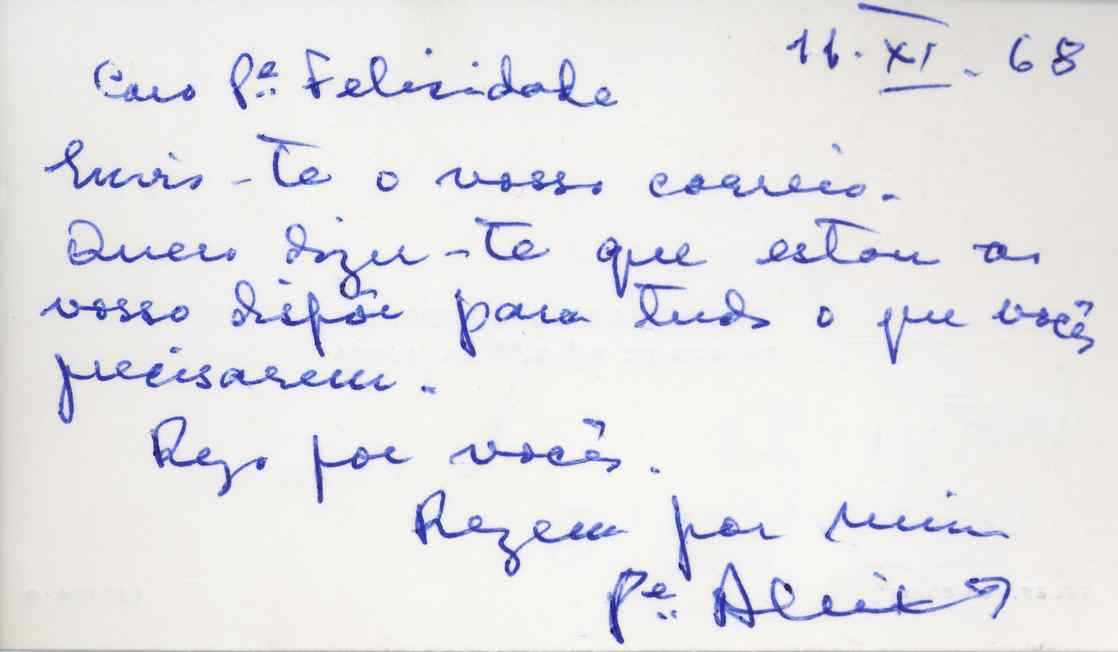 11.XI.68
Caro Pe. Felicidade
Envio-te o vosso correio.
Quero dizer-te que estou ao
vosso dispôr para tudo o que vocês
precisarem.
Rezo por vocês.
Rezem por mim
Pe.